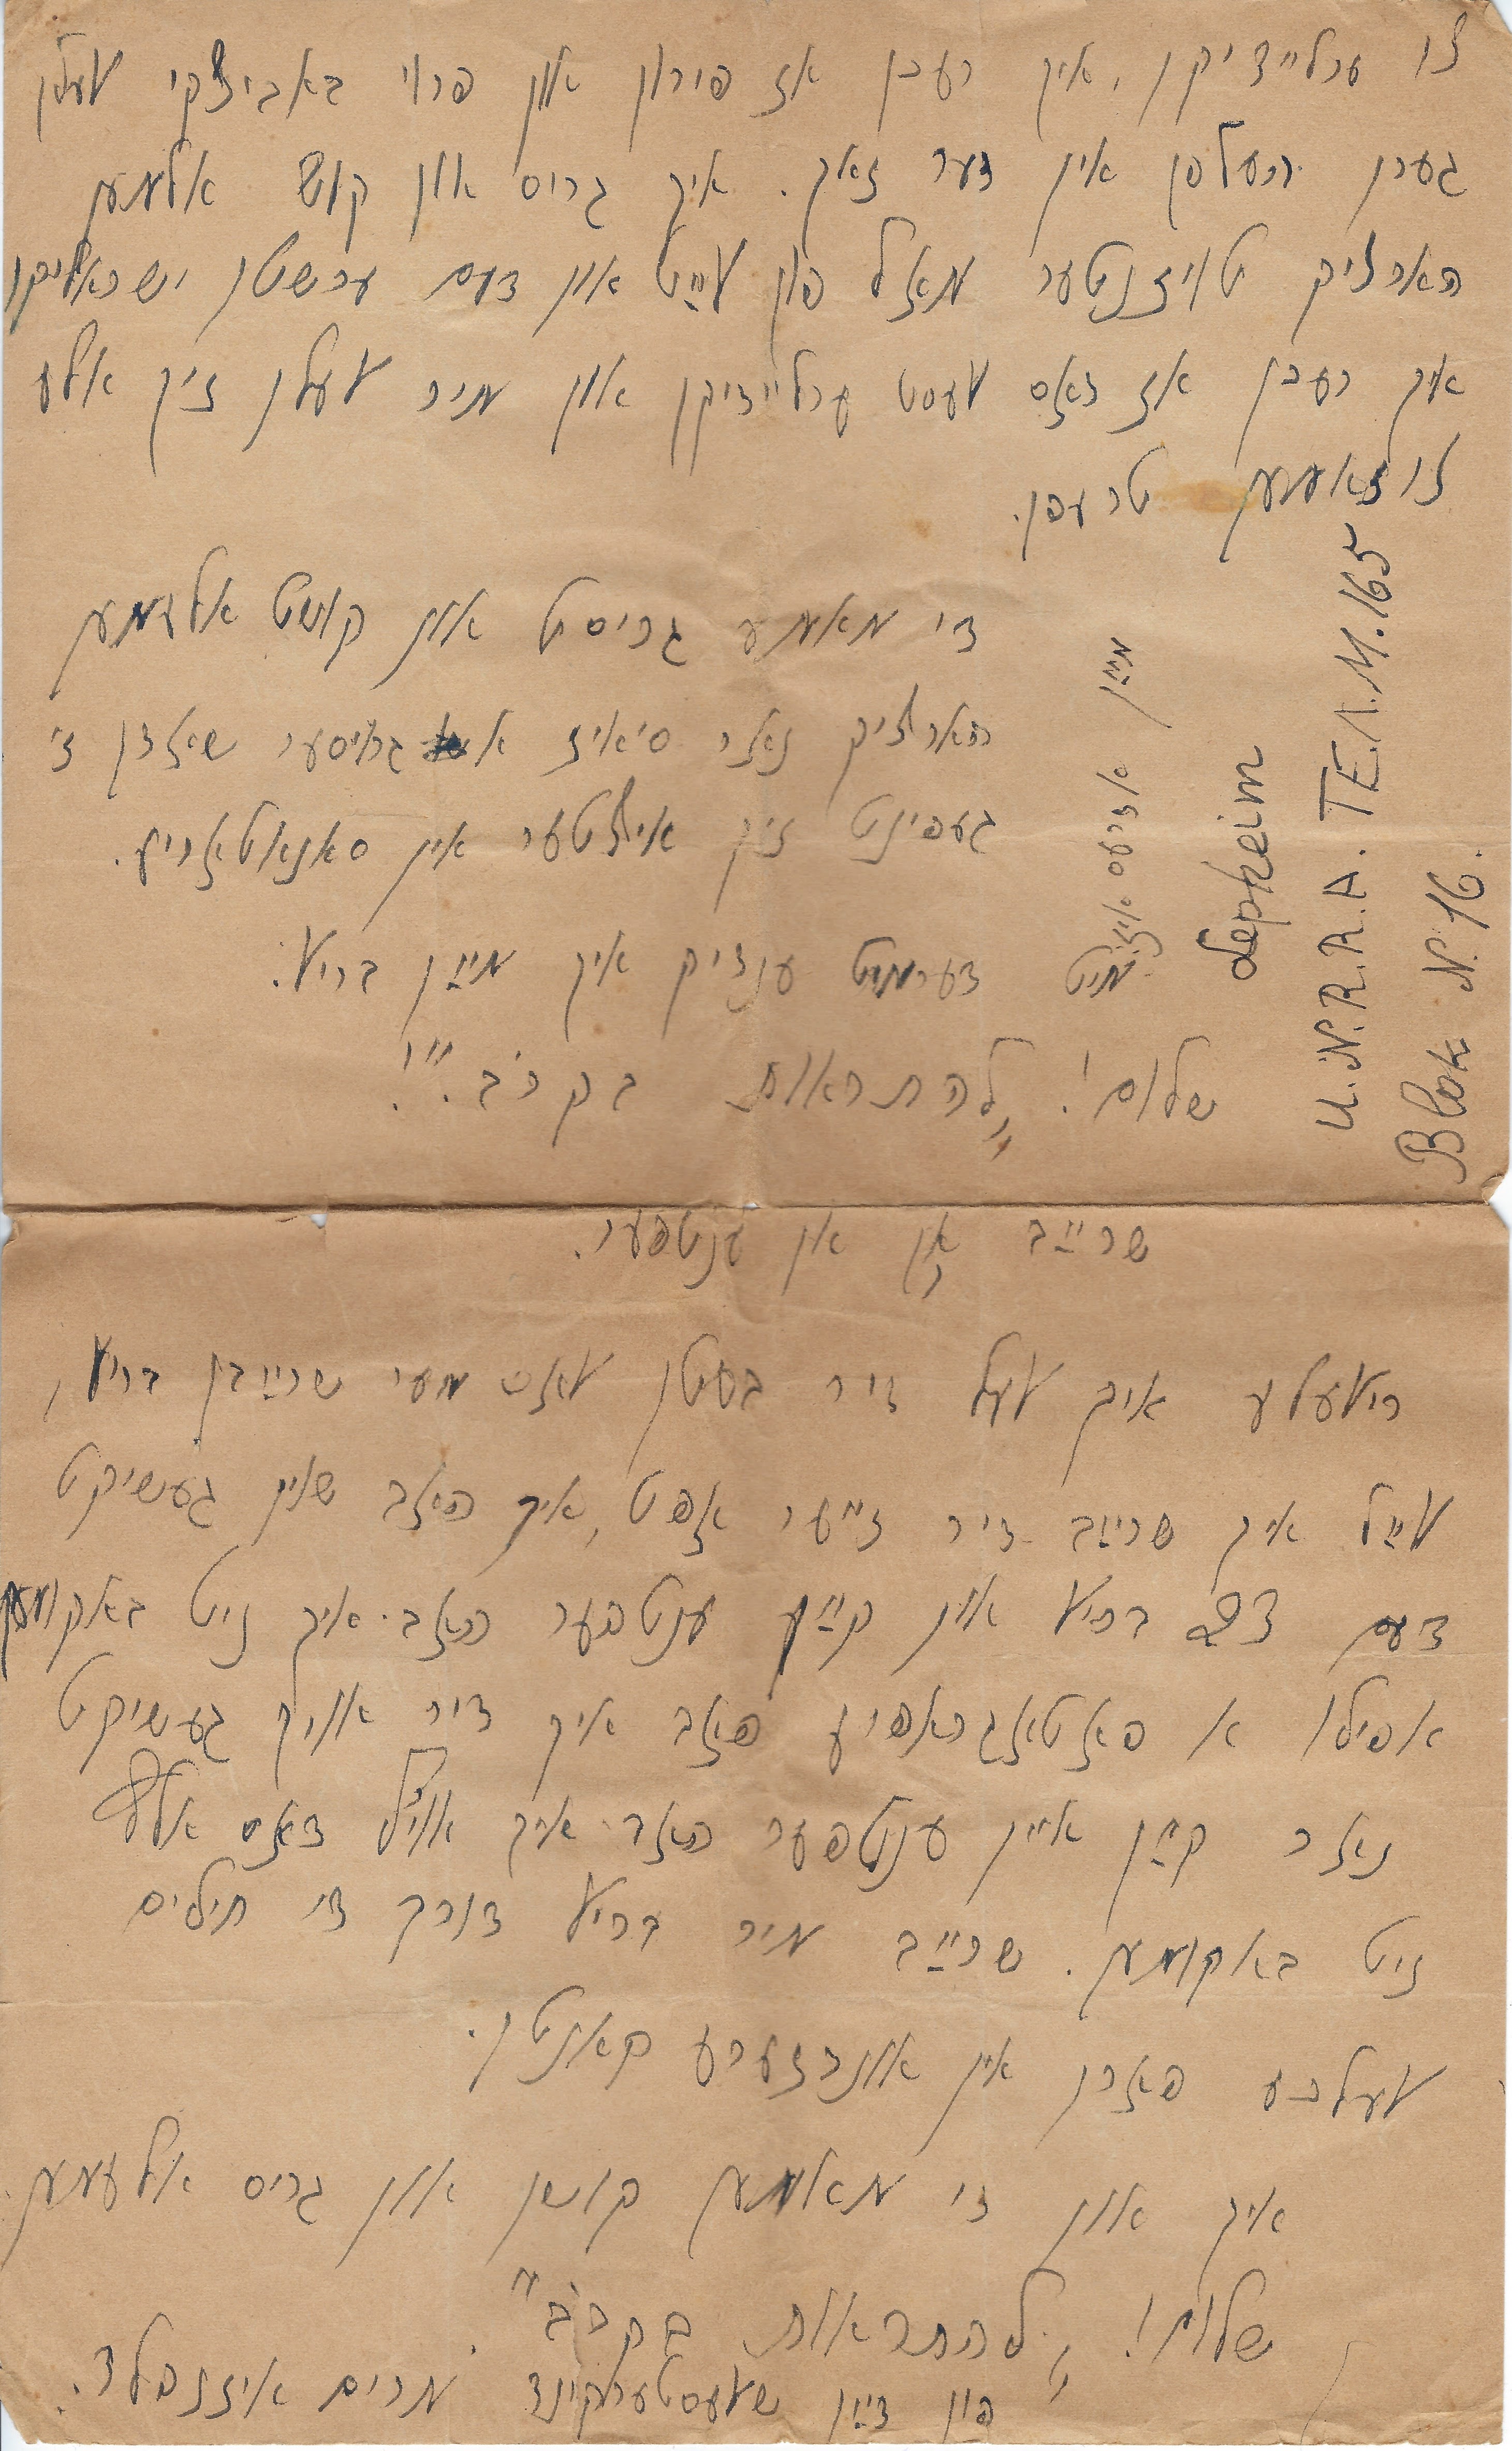 צו ערליידיקן, איך רעכן אז פירון און פרוי באביצקי וועלן
גערן העלפן אין דער זאך. איך גריס און קוש אלעמען
הארציק טויזנטער מאל פון ווייַט און דעם ערשטן ישראליקן
איך רעכן אז דאס וועסט ערליידיקן און מיר וועלן זיך אלע
צוזאמען טרעפן.
די מאמע גריסט און קושט אלעמען
הארציק נאר ס'איז א גרויסער שאדן זי
געפינט זיך איצטער אין סאנאטאריע.
מיט דערמיט ענדיק איך מייַן בריוו.
שלום! "להתראות בקרוב."!
מייַן אדרעס איז:
Lepheim
U.N.R.R.A. TEAM. 165
Blok N. 16.
שרייַב אן ענטפער.
ריוועלע איך וועל דיר בעטן זאלסט מער שרייַבן בריוו,
ווייַל איך שרייַב דיר זייער אפט, איך האב שוין געשיקט
דעם בריוו און קייַן ענטפער האב איך ניט באקומען
אפילו א פאטאגראפיע האב איך דיר אויך געשיקט
נאר קייַן איין ענטפער האב איך אויף דאס אלץ
ניט באקומען. שרייַב מיר בריוו דורך די חילים
וועלכע פארן אין אונדזערע קאנטן.
איך און די מאמען קושן און גריס אלעמען.
שלום! "להתראות בקרוב"
פון דייַן שוועסטערקינד מרים אייזנבלד.